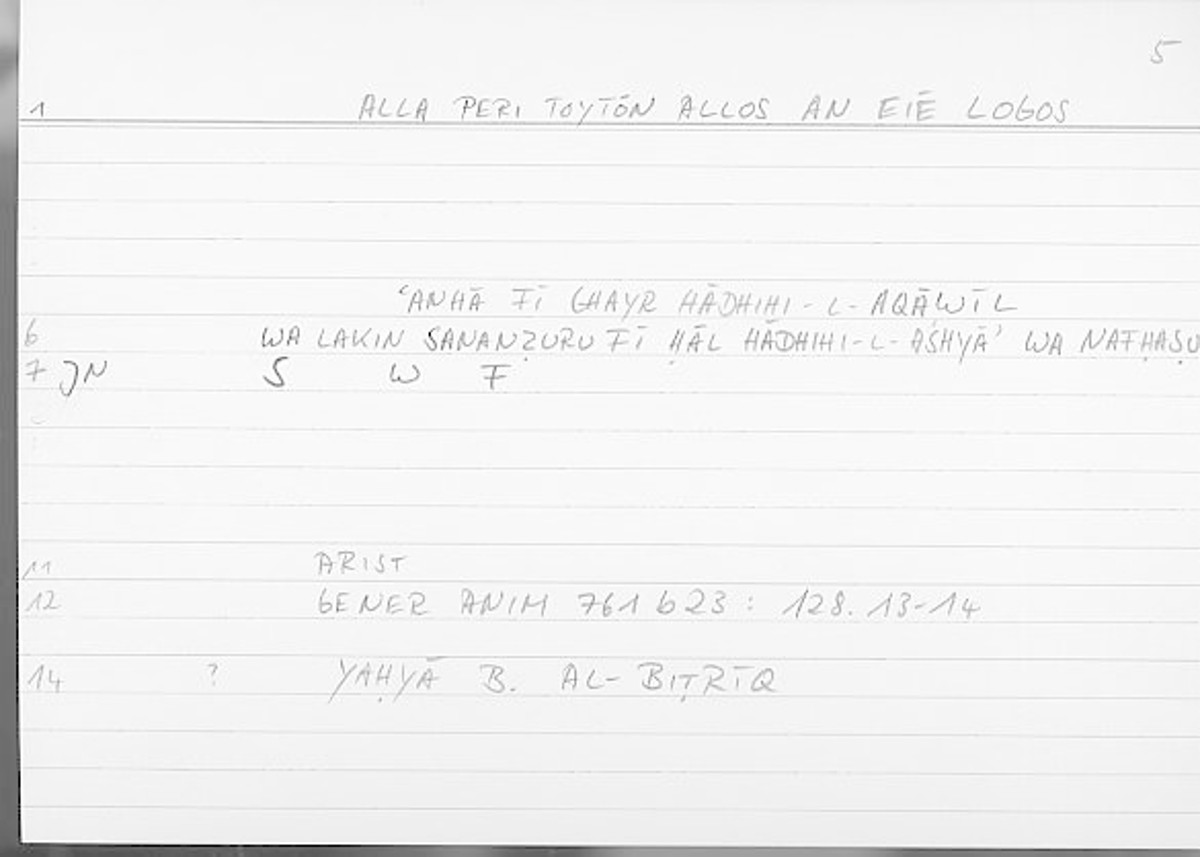 5
1 ALLA PERI TOYTŌN ALLOS AN EIĒ LOGOS
ʿANHĀ FĪ GHAYR HĀDHIHI-L-AQĀWĪL
6 WA LAKIN SANANẒURU FĪ ḤĀL HĀDHIHI-L-ASHYĀʾ WA NAFḤAṢU
7 JN S W F
11 ARIST
12 GENER ANIM 761 b 23 : 128. 13-14
14 ? YAḤYĀ B. AL-BIṬRĪQ